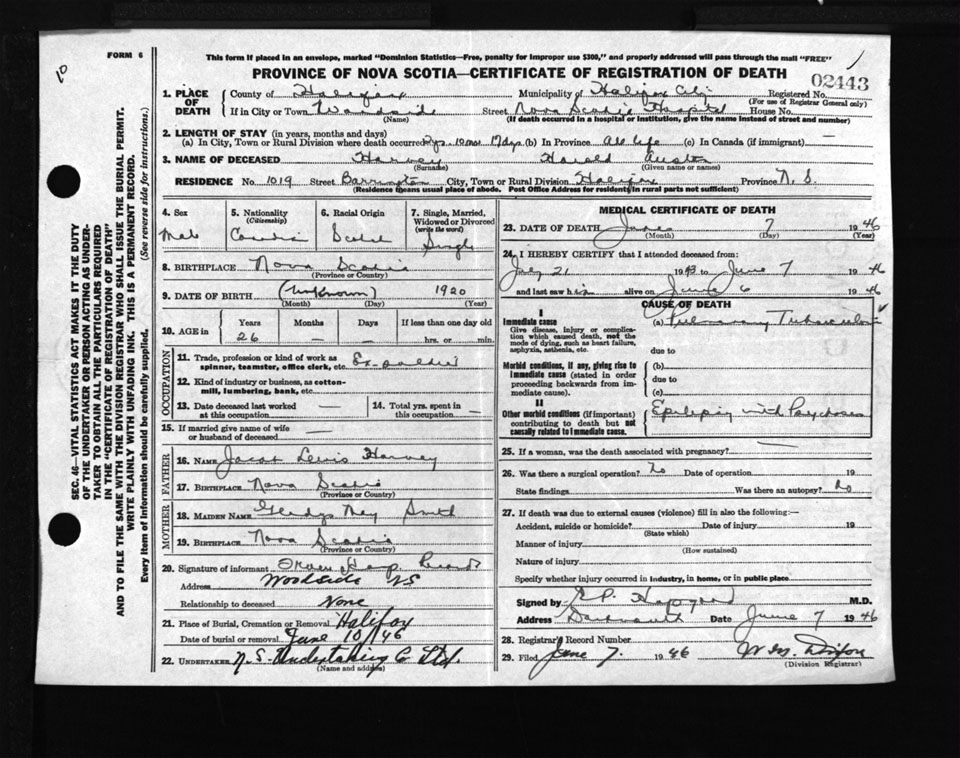 FORM 6
10
This form if placed in an envelope, marked "Dominion Statistics—Free, penalty for improper use $300," and properly addressed will pass through the mail "FREE"
PROVINCE OF NOVA SCOTIA—CERTIFICATE OF REGISTRATION OF DEATH
02443
SEC. 46—VITAL STATISTICS ACT MAKES IT THE DUTY
OF THE UNDERTAKER OR PERSON ACTING AS UNDER-
TAKER TO OBTAIN ALL THE PARTICULARS REQUIRED
IN THE "CERTIFICATE OF REGISTRATION OF DEATH"
AND TO FILE THE SAME WITH THE DIVISION REGISTRAR WHO SHALL ISSUE THE BURIAL PERMIT.
WRITE PLAINLY WITH UNFADING INK. THIS IS A PERMANENT RECORD.
Every item of Information should be carefully supplied. (See reverse side for instructions.)
1. PLACE OF DEATH
County of Halifax Municipality of Halifax City Registered No.
(For use of Registrar General only)
If in City or Town Woodside Street Nova Scotia Hospital House No.
(Name) (If death occurred in a hospital or institution, give the name instead of street and number)
2. LENGTH OF STAY (in years, months and days)
(a) In City, Town or Rural Division where death occurred 2 yrs. 10 mos. 17 dys. (b) In Province All life (c) In Canada (if immigrant) —
3. NAME OF DECEASED Harvey Harold Austin
(Surname) (Given name or names)
RESIDENCE No. 1019 Street Barrington City, Town or Rural Division Halifax Province N. S.
(Residence means usual place of abode. Post Office Address for residents in rural parts not sufficient)
4. Sex Male
5. Nationality (Citizenship) Canadian
6. Racial Origin
7. Single, Married, Widowed or Divorced (write the word) Single
8. BIRTHPLACE Nova Scotia
(Province or Country)
9. DATE OF BIRTH (Unknown) 1920
(Month) (Day) (Year)
10. AGE in Years Months Days If less than one day old
26 — — hrs. or min.
OCCUPATION
11. Trade, profession or kind of work as spinner, teamster, office clerk, etc. Ex-soldier
12. Kind of industry or business, as cotton-mill, lumbering, bank, etc.
13. Date deceased last worked at this occupation —
14. Total yrs. spent in this occupation —
15. If married give name of wife or husband of deceased —
FATHER
16. NAME Lewis Harvey
17. BIRTHPLACE Nova Scotia
(Province or Country)
MOTHER
18. MAIDEN NAME Gladys May Smith
19. BIRTHPLACE Nova Scotia
(Province or Country)
20. Signature of informant Hosp. Records
Address Woodside NS
Relationship to deceased None
21. Place of Burial, Cremation or Removal Halifax
Date of burial or removal June 10/46
22. UNDERTAKER N.S. Undertaking Co Ltd.
(Name and address)
MEDICAL CERTIFICATE OF DEATH
23. DATE OF DEATH June 7 1946
(Month) (Day) (Year)
24. I HEREBY CERTIFY that I attended deceased from:
July 21 1943 to June 7 1946
and last saw him alive on June 6 1946
CAUSE OF DEATH
I
Immediate cause
Give disease, injury or complication which caused death, not the mode of dying, such as heart failure, asphyxia, asthenia, etc.
(a) Pulmonary Tuberculosis
due to
Morbid conditions, if any, giving rise to Immediate cause (stated in order proceeding backwards from immediate cause).
(b)
due to
(c)
II
Other morbid conditions (if important) contributing to death but not causally related to immediate cause.
Epilepsy with Psychosis
25. If a woman, was the death associated with pregnancy? —
26. Was there a surgical operation? No Date of operation 19
State findings Was there an autopsy? No
27. If death was due to external causes (violence) fill in also the following:—
Accident, suicide or homicide? Date of injury 19
(State which)
Manner of injury
(How sustained)
Nature of injury
Specify whether injury occurred in industry, in home, or in public place
Signed by M.D.
Address Dartmouth Date June 7 1946
28. Registrar's Record Number
29. Filed June 7. 1946 W. M. Dixon
(Division Registrar)